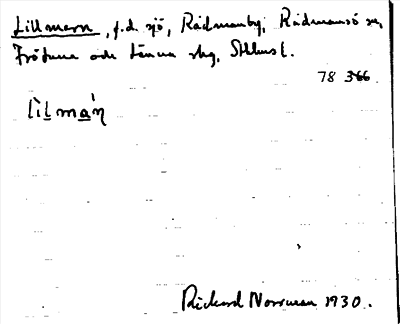 Lillmarn, f.d. sjö, Rådmanby, Rådmansö sn,
Frötuna och Länna skg, Sthlms l.
78 366.
lìlmàṇ
Rickard Norrman 1930.